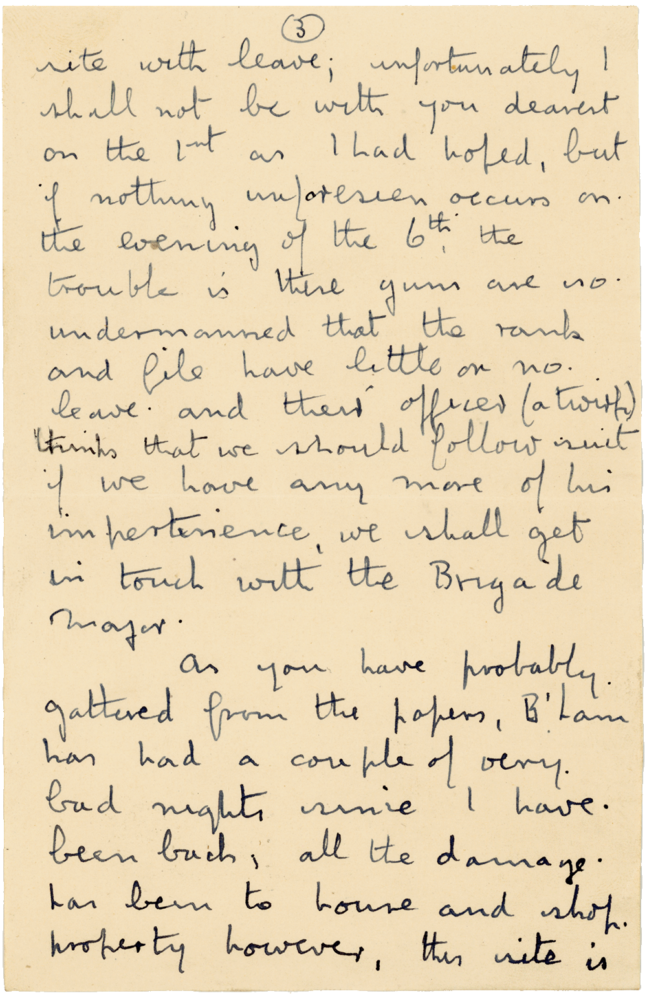 3
site with leave; unfortunately I
shall not be with you dearest
on the 1st as I had hoped, but
if nothing unforeseen occurs on
the evening of the 6th, the
trouble is these guns are so
undermanned that the rank
and file have little or no
leave. and their officer (a twirp)
thinks that we should follow suit
if we have any more of his
impertinence, we shall get
in touch with the Brigade
Major.
As you have probably
gathered from the papers, B'ham
has had a couple of very
bad nights since I have
been back, all the damage
has been to house and shop
property however, this site is